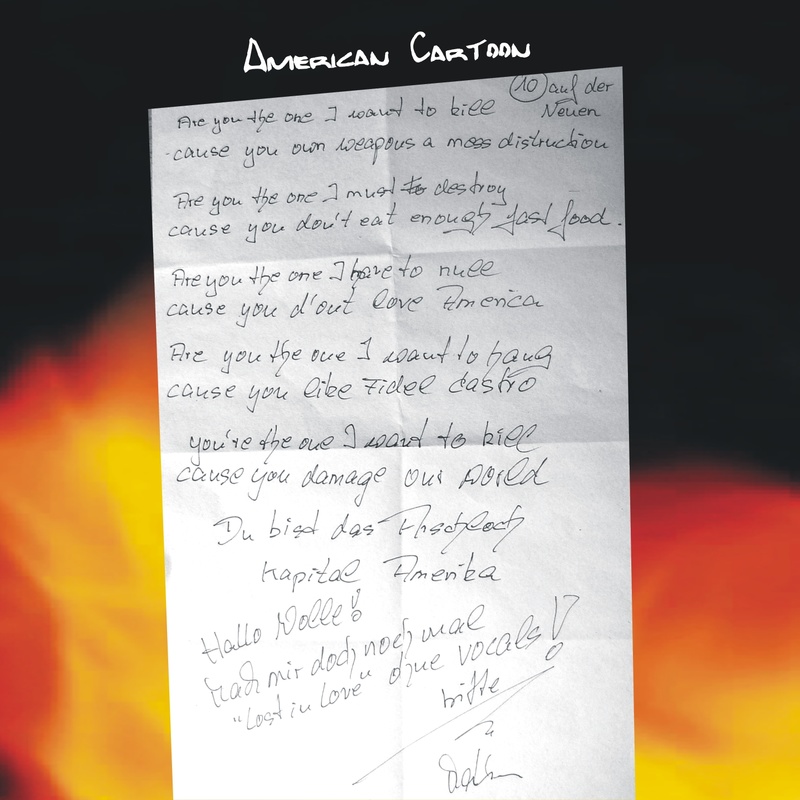 AMERICAN CARTOON
10 auf der
Neuen
Are you the one I want to kill
cause you own weapons a mass distruction
Are you the one I must to destroy
cause you don't eat enough fast food.
Are you the one I have to null
cause you d'ont love America
Are you the one I want to hang
cause you like Fidel Castro
you're the one I want to kill
cause you damage our world
Du bist das Arschloch
Kapital Amerika
Hallo Nolle!
Mach mir doch noch mal
"Lost in Love" ohne vocals!
bitte